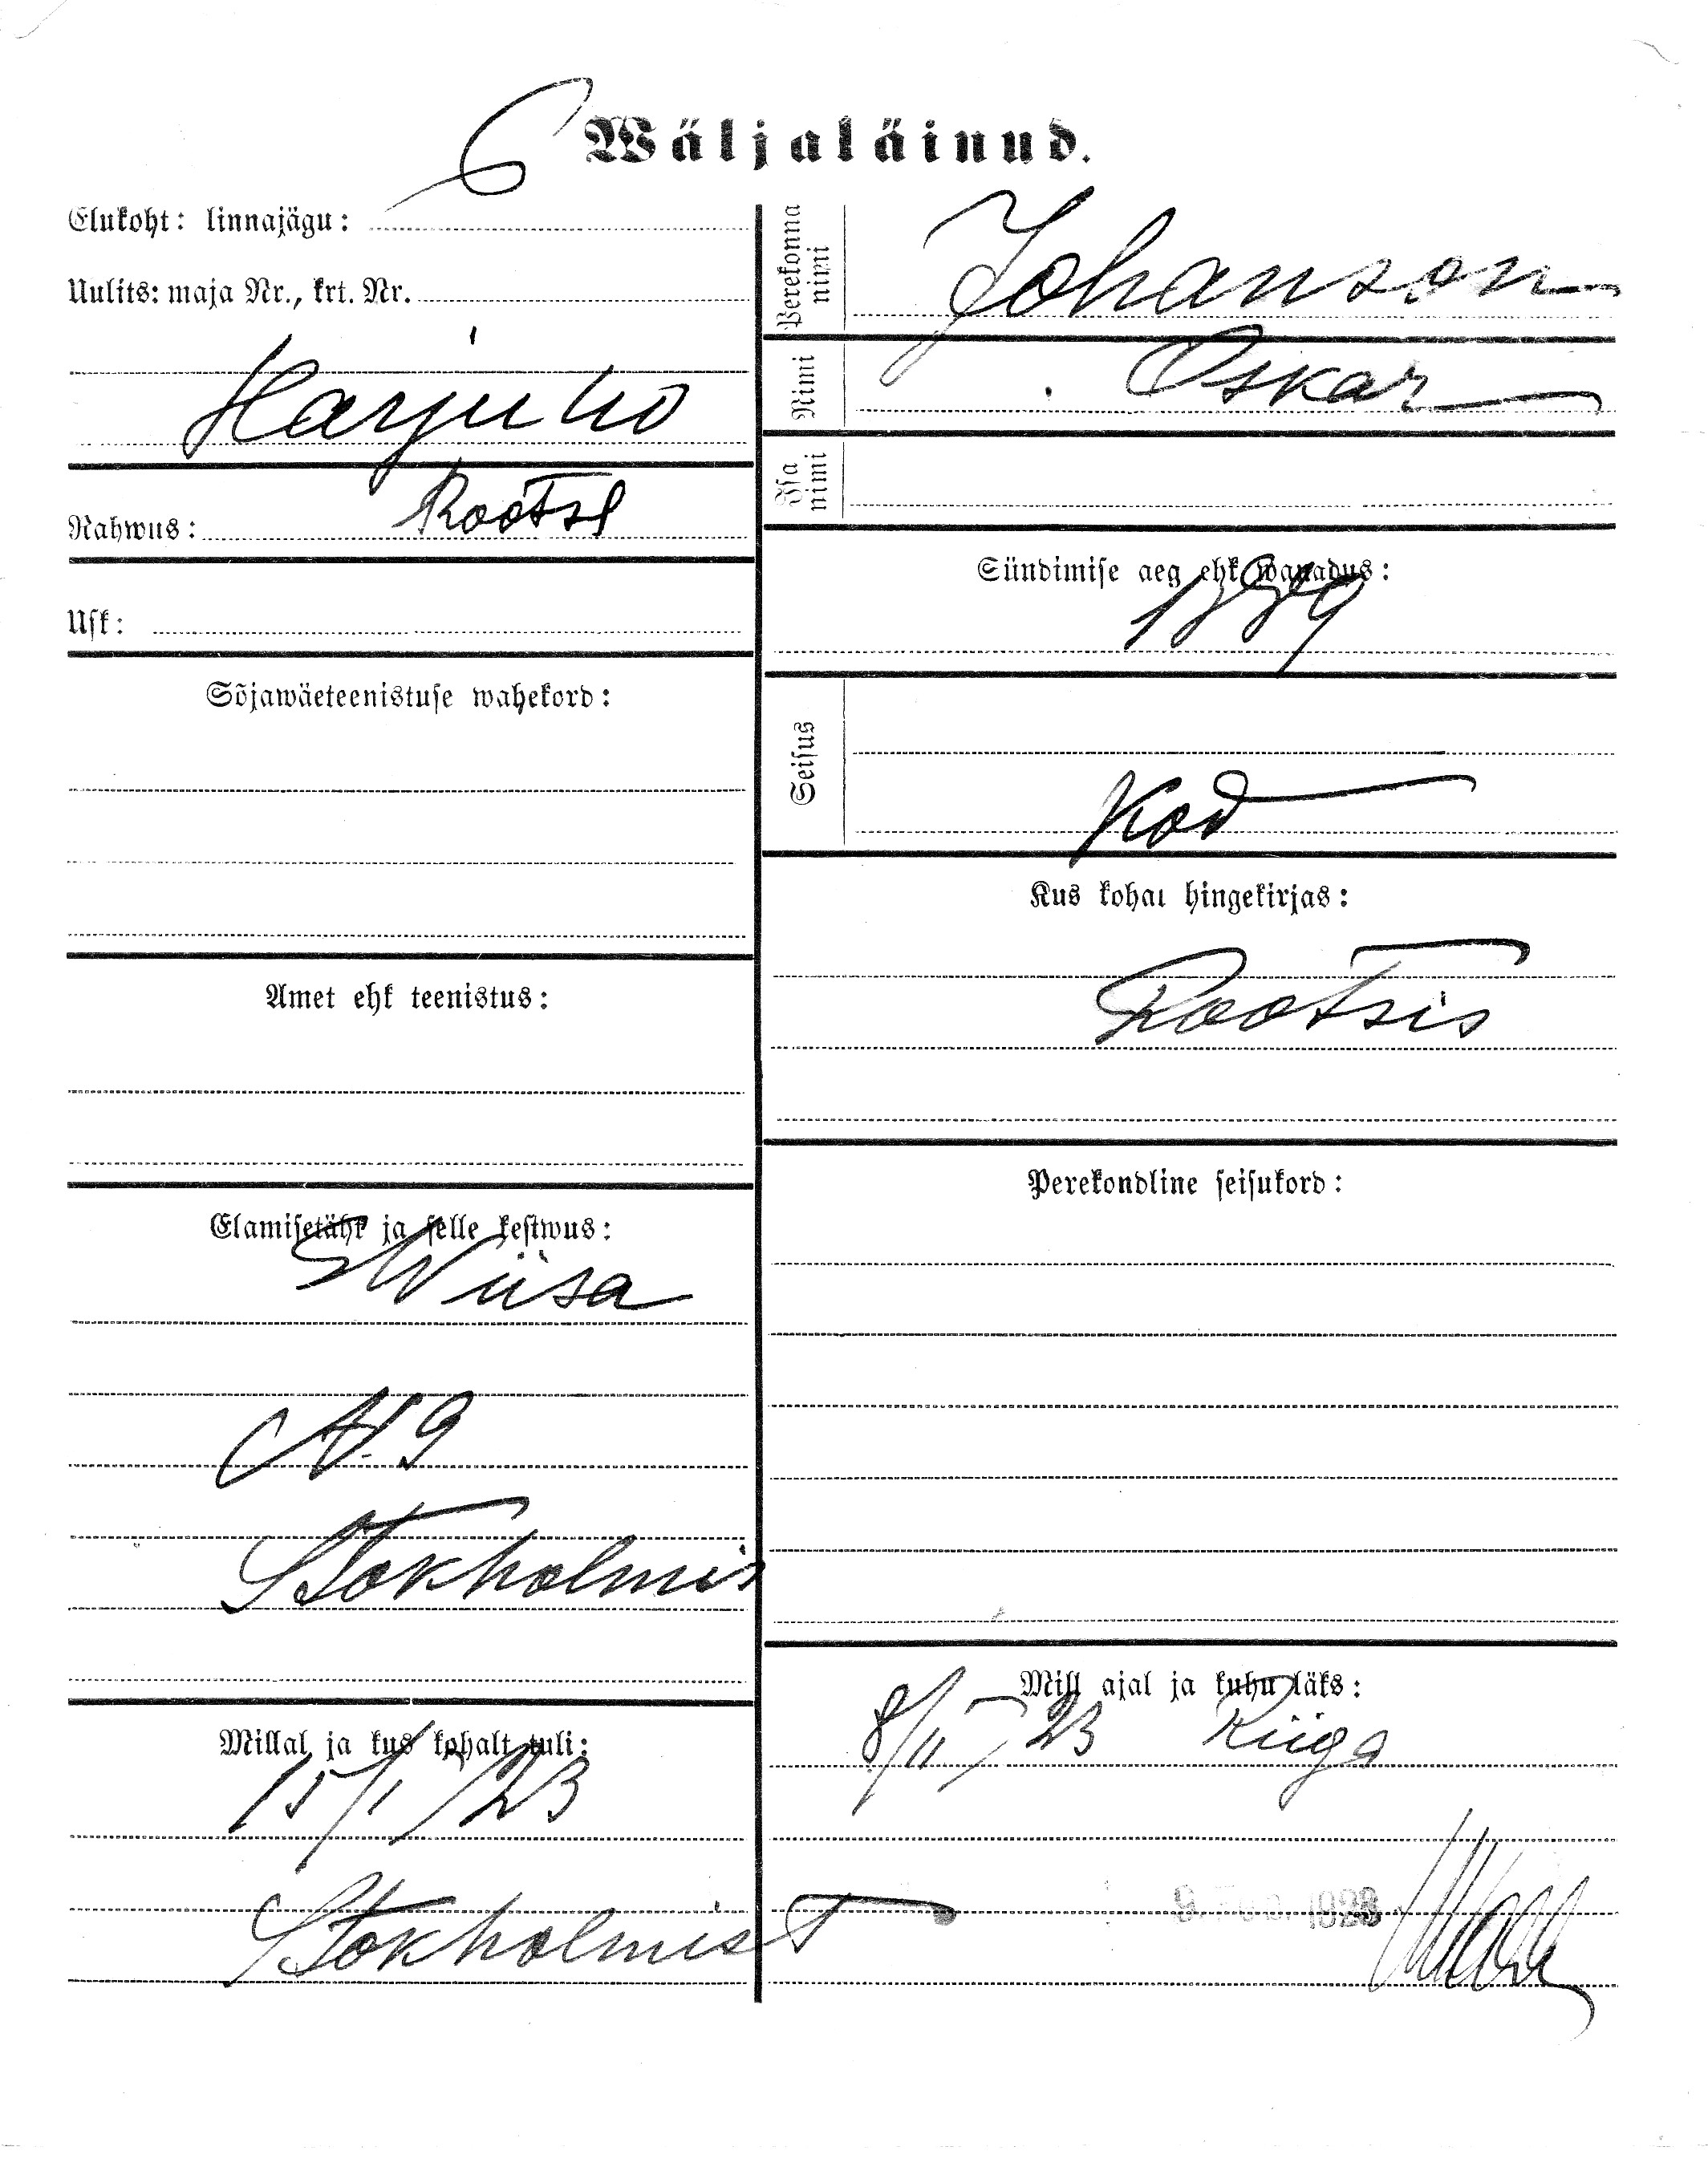 Wäljaläinud.
Elukoht: linnajägu: 6
Uulits: maja Nr., krt. Nr.
Harju
Rahwus: Rootsl
Usk:
Sõjawäeteenistuse wahekord:
Amet ehk teenistus:
Elamisetäht ja selle kestwus:
Wiisa
N. 9
Stokholmis
Millal ja kus kohalt tuli:
15/I/23
Stokholmist
Perekonna nimi
Johanson
Nimi
Oskar
Isa nimi
Sündimise aeg ehk wanadus:
1889
Seisus
Kod
Kus kohal hingekirjas:
Rootsis
Perekondline seisukord:
Mill ajal ja kuhu läks:
8/II 23 Riiga